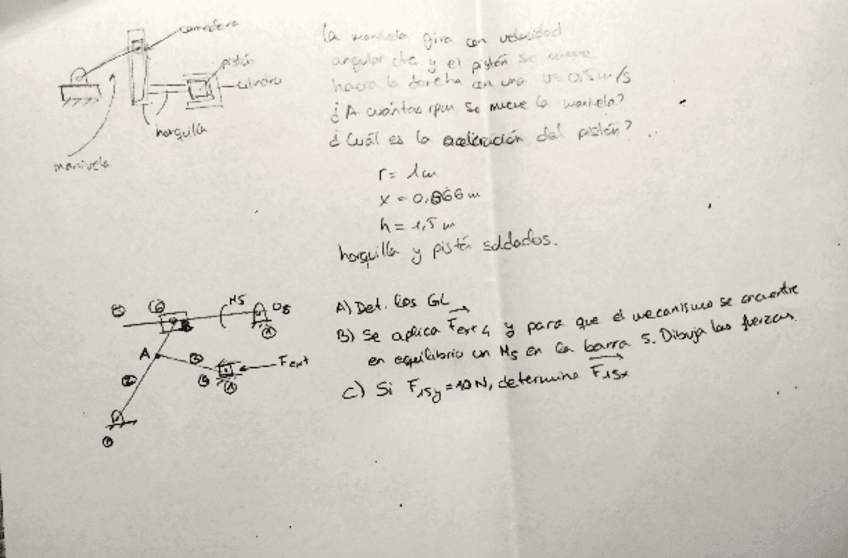 corredera
pistón
cilindro
horquilla
manivela
La manivela gira con velocidad
angular cte y el pistón se mueve
hacia la derecha con una v=0,5 m/s
¿A cuántas rpm se mueve la manivela?
¿Cuál es la aceleración del pistón?
r = 1m
x = 0,866 m
h = 1,5 m
horquilla y pistón soldados.
5
6
M5
O5
1
A
3
2
4
1
Fext
1
A) Det. los GL
B) Se aplica Fext4 y para que el mecanismo se encuentre
en equilibrio un M5 en la barra 5. Dibuja las fuerzas.
C) Si F15y = 10 N, determina F15x